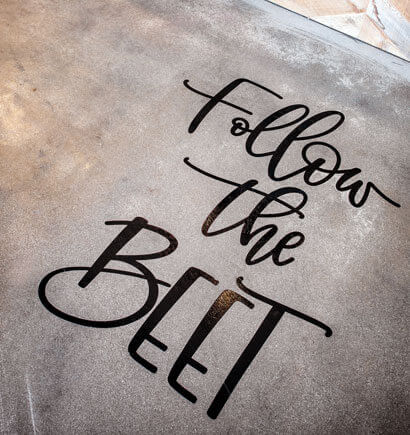 Follow
the
BEET